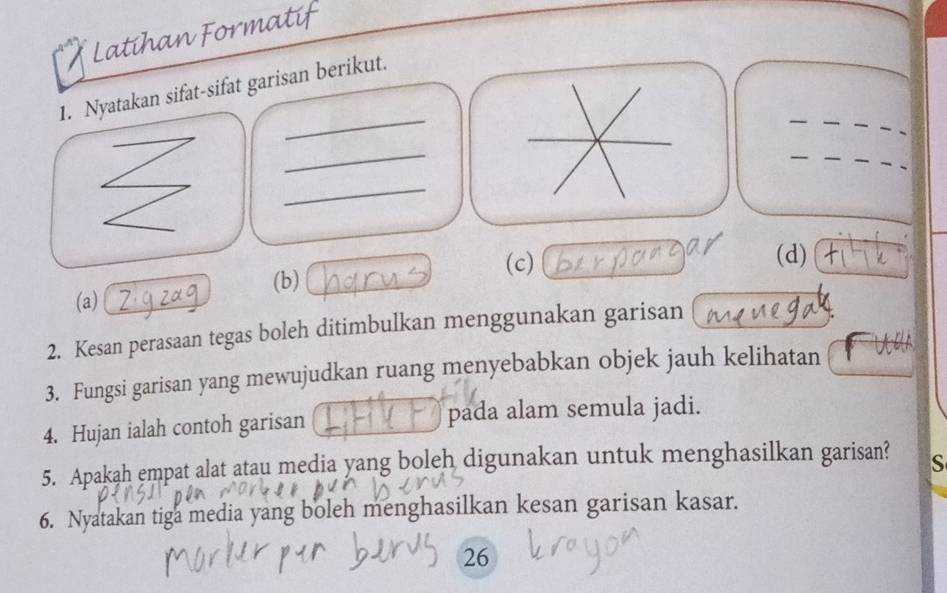 Latihan Formatif
1. Nyatakan sifat-sifat garisan berikut.
(a) Zigzag (b) harus (c) berpancar (d) titik
2. Kesan perasaan tegas boleh ditimbulkan menggunakan garisan menegak.
3. Fungsi garisan yang mewujudkan ruang menyebabkan objek jauh kelihatan
4. Hujan ialah contoh garisan titik-titik pada alam semula jadi.
5. Apakah empat alat atau media yang boleh digunakan untuk menghasilkan garisan?
pensil pen marker pen berus
6. Nyatakan tiga media yang boleh menghasilkan kesan garisan kasar.
marker pen berus krayon
26